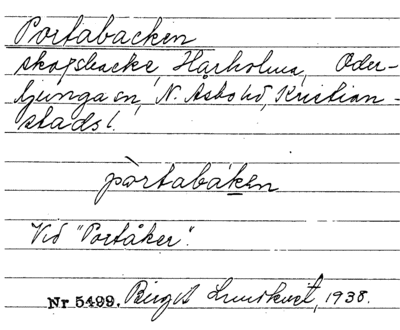 Portabacken
skogsbacke, Hårholma, Oder-
ljunga sn, N. Åsbo hd, Kristian-
stads l.
pòrtabáken
Vid "Portåker".
Nr 5499. Birgit Lundkvist, 1938.